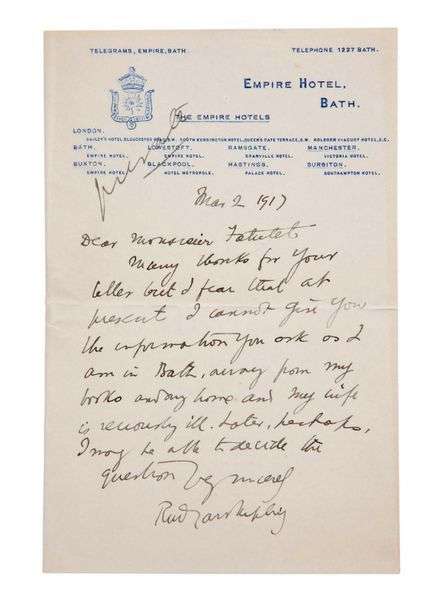 TELEGRAMS, EMPIRE, BATH
TELEPHONE 1227 BATH.
EMPIRE HOTEL,
BATH.
THE EMPIRE HOTELS
LONDON.
BATH. LOWESTOFT. RAMSGATE. MANCHESTER.
EMPIRE HOTEL. EMPIRE HOTEL. GRANVILLE HOTEL. VICTORIA HOTEL.
BUXTON. BLACKPOOL. HASTINGS. SURBITON.
EMPIRE HOTEL. HOTEL METROPOLE. PALACE HOTEL. SOUTHAMPTON HOTEL.
private
Mar 2 1917
Dear Monsieur
Many thanks for your
letter but I fear that at
present I cannot give you
the information you ask as I
am in Bath, away from my
books and my home and my wife
is seriously ill. Later, perhaps,
I may be able to decide the
question
Rudyard Kipling